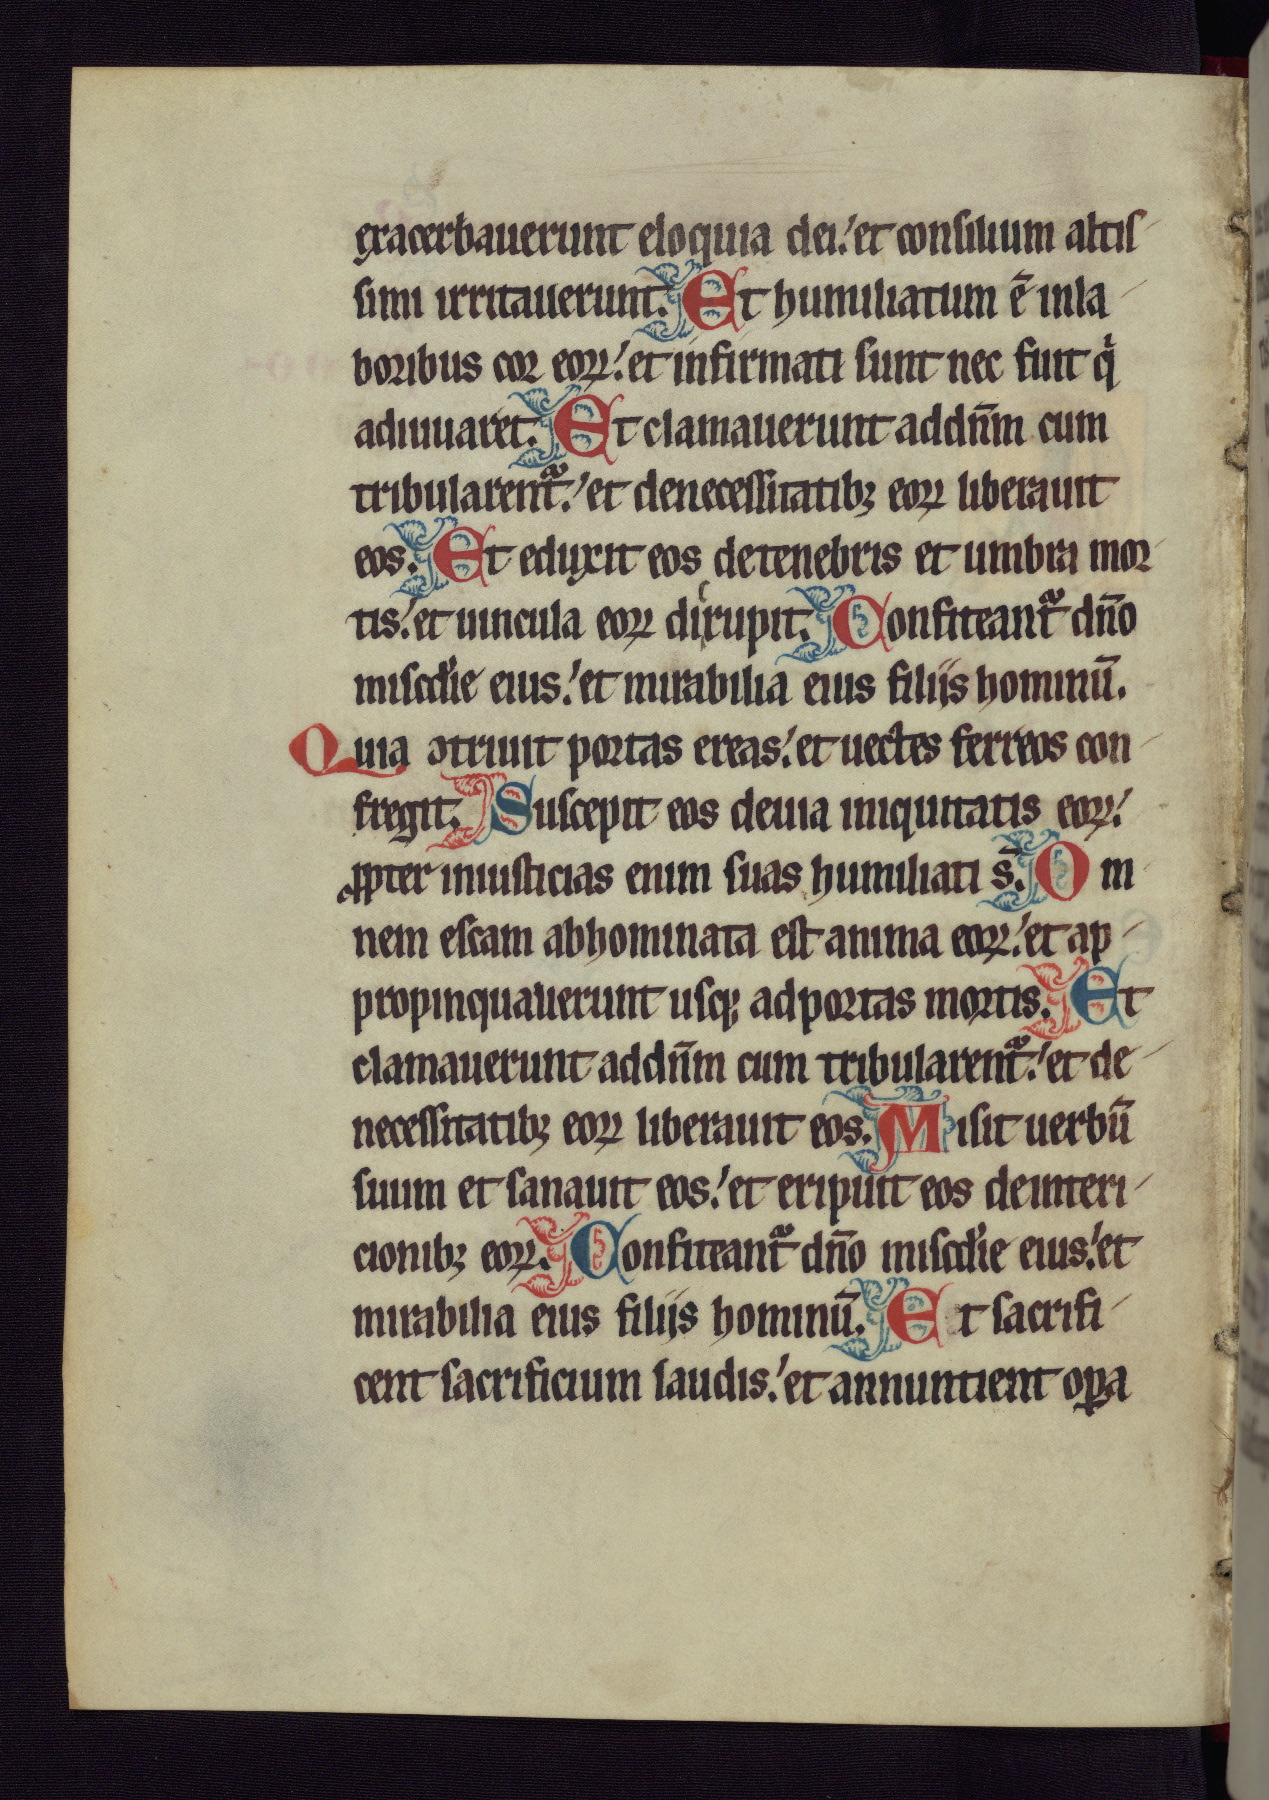 exacerbauerunt eloquia dei. et consilium altis
simi irritauerunt. Et humiliatum ē inla
boribus cor eoꝝ. et infirmati sunt nec fuit qͥ
adiuuaret. Et clamauerunt addn̄m cum
tribularentᷓ. et denecessitatibꝫ eoꝝ liberauit
eos. Et eduxit eos detenebris et umbra mor
tis. et uincula eoꝝ dirupit. Confiteantᷓ dn̄o
miscd̓ie eius. et mirabilia eius filijs hominū.
Quia ꝯtriuit portas ereas. et uectes ferreos con
fregit. Suscepit eos deuia iniquitatis eoꝝ.
ꝓpter iniusticias enim suas humiliati s̄. Om
nem escam abhominata est anima eoꝝ. et ap
propinquauerunt usqꝫ adportas mortis. Et
clamauerunt addn̄m cum tribularentᷓ. et de
necessitatibꝫ eoꝝ liberauit eos. Misit uerbū
suum et sanauit eos. et eripuit eos deinteri
cionibꝫ eoꝝ. Confiteantᷓ dn̄o miscd̓ie eius. et
mirabilia eius filijs hominū. Et sacrifi
cent sacrificium laudis. et annuntient oꝑa